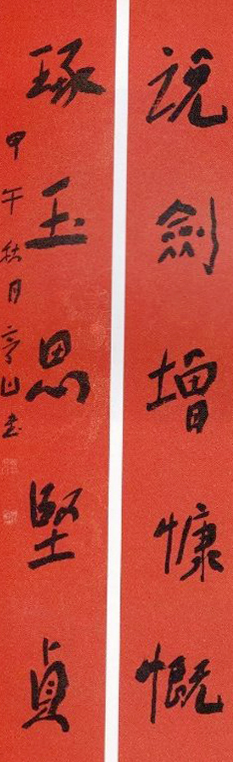 說劍增慷慨
琢玉思堅貞
甲午秋月亭山書